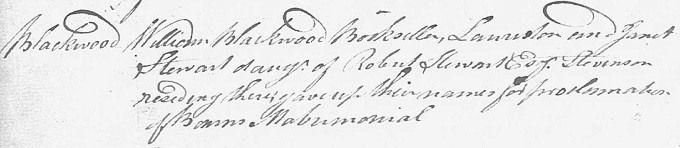 Blackwood William Blackwood Bookseller, Lauriston and Janet
Stewart daugr. of Robert Stewart Esqr. Stevenson
residing there, gave up their names for proclamation
of Banns Matrimonial